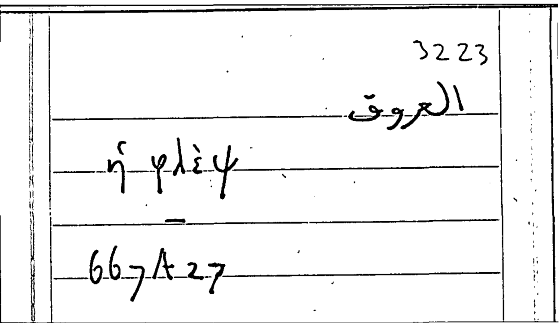 3223
العروق
ἡ φλὲψ
–
667A27